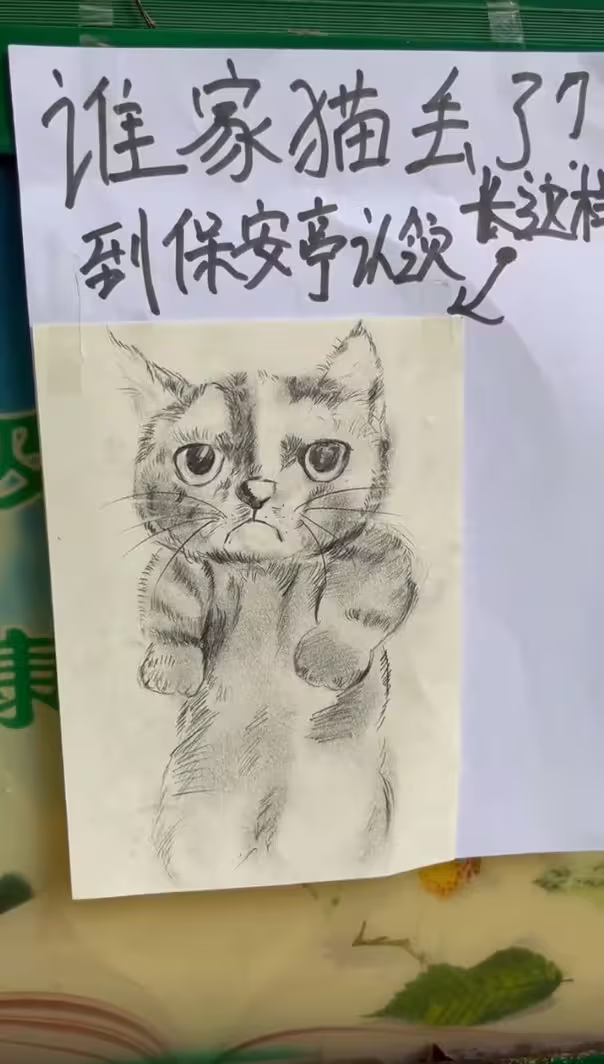 谁家猫丢了?
到保安亭认领
长这样